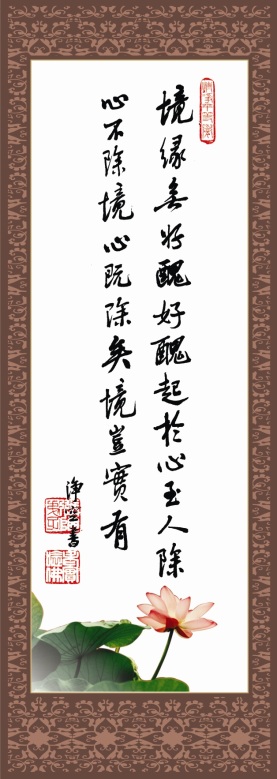 境緣無好醜好醜起於心至人除
心不除境心既除矣境豈實有
淨空書